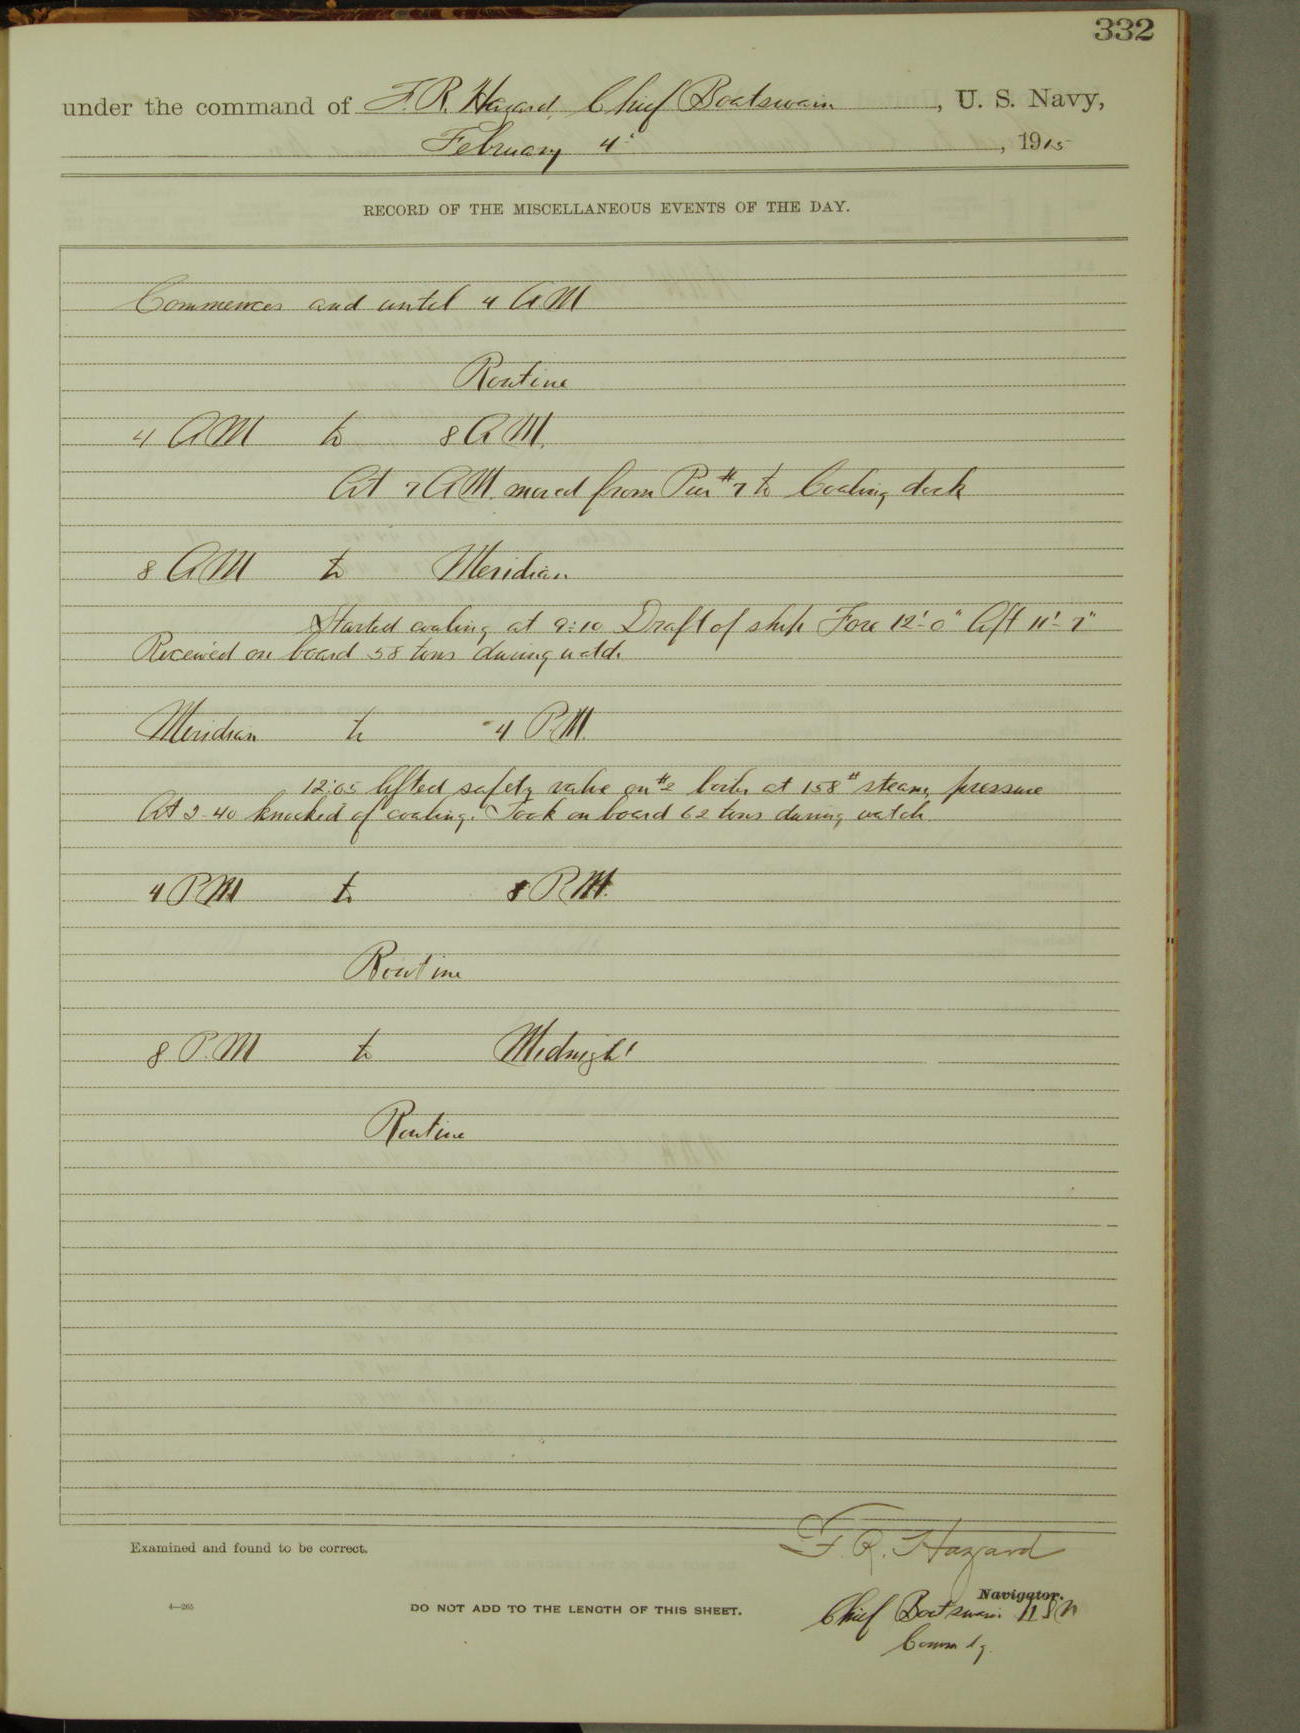 332
under the command of F. R. Hazard, Chief Boatswain, U. S. Navy,
February 4", 1915
RECORD OF THE MISCELLANEOUS EVENTS OF THE DAY.
Commences and until 4 A.M
Routine
4 A.M to 8 A.M.
At 7 A.M. moved from Pier #7 to Coaling dock
8 A.M to Meridian
Started coaling at 9:10 Draft of ship Fore 12'-0" Aft 11'-7"
Received on board 58 tons during watch
Meridian to 4 P.M.
12:05 lifted safety valve on #2 boiler at 158# steam pressure
At 2-40 knocked of coaling. Took on board 62 tons during watch
4 P.M to 8 P.M.
Routine
8 P.M to Midnight
Routine
Examined and found to be correct.
F. R. Hazard
Navigator.
4—265
DO NOT ADD TO THE LENGTH OF THIS SHEET.
Chief Boatswain U S N
Comm'd'g.